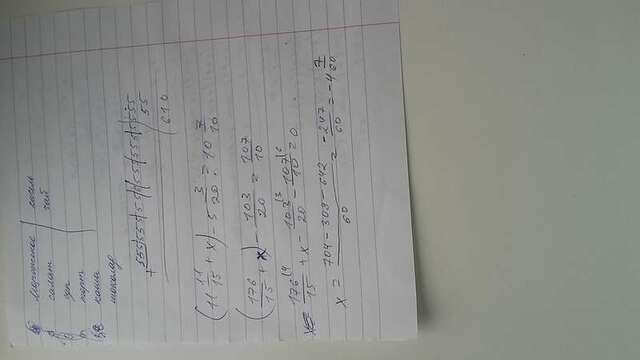 мороженое кисель
салат чай
суп
торт
каша
шоколад
+ 555|555|555|555|555|555
55
610
(11 11/15 + x) - 5 3/20 = 10 7/10
(176/15 + x) - 103/20 = 107/10
176/15 (4 + x - 103/20 (3 - 107/10 (6 = 0
x = 704-309-642/60 = -247/60 = -4 7/60